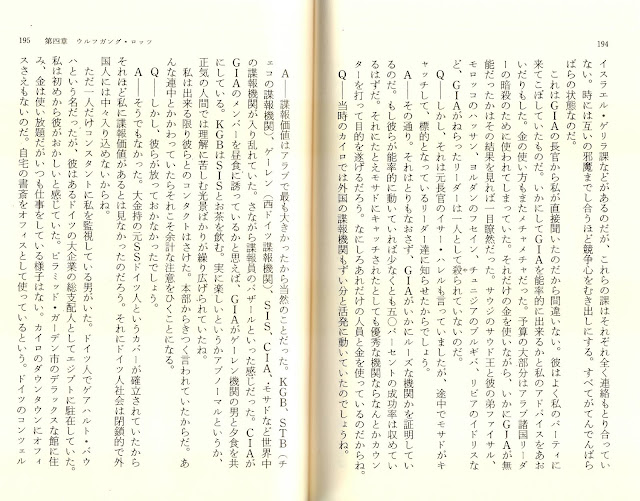 194
イスラエル・ゲリラ課などがあるのだが、これらの課はそれぞれ全く連絡もとり合ってい
ない。時には互いの邪魔までし合うのほど競争心をむき出しにする。すべてがてんでんば
らばらの状態なのだ。
これはGIAの長官から私が直接聞いたのだから間違いない。彼はよく私のパーティに
来てこぼしていたものだ。いかにしてGIAを能率的に出来るかと私のアドバイスをあお
いだりもした。金の使い方もまたメチャメチャだった。予算の大部分はアラブ諸国リーダ
ーの暗殺のために使われてしまっていた。それだけの金を使いながら、いかにGIAが無
能だったかはその結果を見れば一目瞭然だった。サウジのサウド王と彼の弟ファイサル、
モロッコのハッサン、ヨルダンのフセイン、チュニジアのブルギバ、リビアのイドリスな
ど、GIAがねらったリーダーは一人として殺られていないのだ。
Q――しかし、それは元長官のイサー・ハレルも言っていましたが、途中でモサドがキ
ャッチして、標的となっているリーダー達に知らせたからでしょう。
A――その通り。それはとりもなおさず、GIAがいかにルーズな機関かを証明してい
るのだ。もし彼らが能率的に動いていれば少なくとも五〇パーセントの成功率は収めてい
るはずだ。それにたとえモサドにキャッチされたとしても優秀な機関ならなんとかカウン
ターを打って目的を遂げるだろう。なにしろあれだけの人員と金を使っているのだからね。
Q――当時のカイロでは外国の諜報機関もずい分と活発に動いていたのでしょうね。
195 第四章 ウルフガング・ロッツ
A――諜報価値はアラブで最も大きかったから当然のことだった。KGB、STB(チ
ェコの諜報機関)、ゲーレン(西ドイツ諜報機関)、SIS、CIA、モサドなど世界中
の諜報機関が入り乱れていた。さながら諜報員のバザールといった感じだった。CIAが
GIAのメンバーを昼食に誘っているかと思えば、GIAがゲーレン機関の男と夕食を共
にしている。KGBはSISとお茶を飲む。実に楽しいというかアブノーマルというか、
正気の人間では理解に苦しむ光景ばかりが繰り広げられていたね。
私は出来る限り彼らとのコンタクトはさけた。本部からきつく言われていたからだ。あ
んな連中とかかわっていたらそれこそ余計な注意をひくことになる。
Q――しかし、彼らが放っておかなかったでしょう。
A――そうでもなかった。大金持の元SSドイツ人というカバーが確立されていたから
それほど私に諜報価値があるとは見なかったのだろう。それにドイツ人社会は閉鎖的で外
国人には中々入り込めないからね。
ただ一人だけコンスタントに私を監視している男がいた。ドイツ人でゲアハルト・バウ
ハという名だったが、彼はあるドイツの大企業の総支配人としてエジプトに駐在していた。
私は初めから彼がおかしいと感じていた。ピラミッド・ガーデン市のデラックスな館に住
み、金は使い放題だがいつも仕事をしている様子はない。カイロのダウンタウンにオフィ
スさえもないのだ。自宅の書斎をオフィスとして使っているという。ドイツのコンツェル